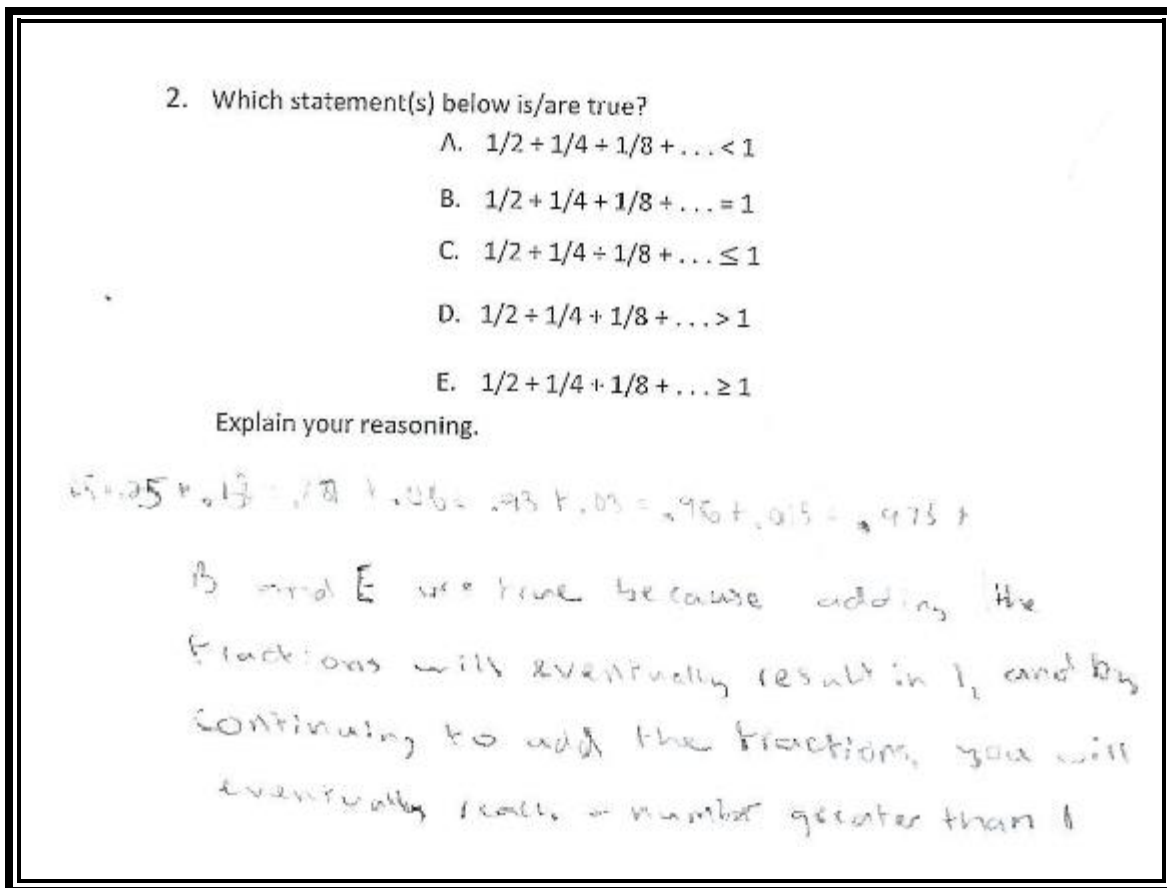 2. Which statement(s) below is/are true?
A. 1/2 + 1/4 + 1/8 + . . . < 1
B. 1/2 + 1/4 + 1/8 + . . . = 1
C. 1/2 + 1/4 + 1/8 + . . . ≤ 1
D. 1/2 + 1/4 + 1/8 + . . . > 1
E. 1/2 + 1/4 + 1/8 + . . . ≥ 1
Explain your reasoning.
.25 + .13 .93 + .03 = .96 + .015 = .975 +
B and E are true because adding the
fractions will eventually result in 1, and by
continuing to add the fractions, you will
eventually reach a number greater than 1